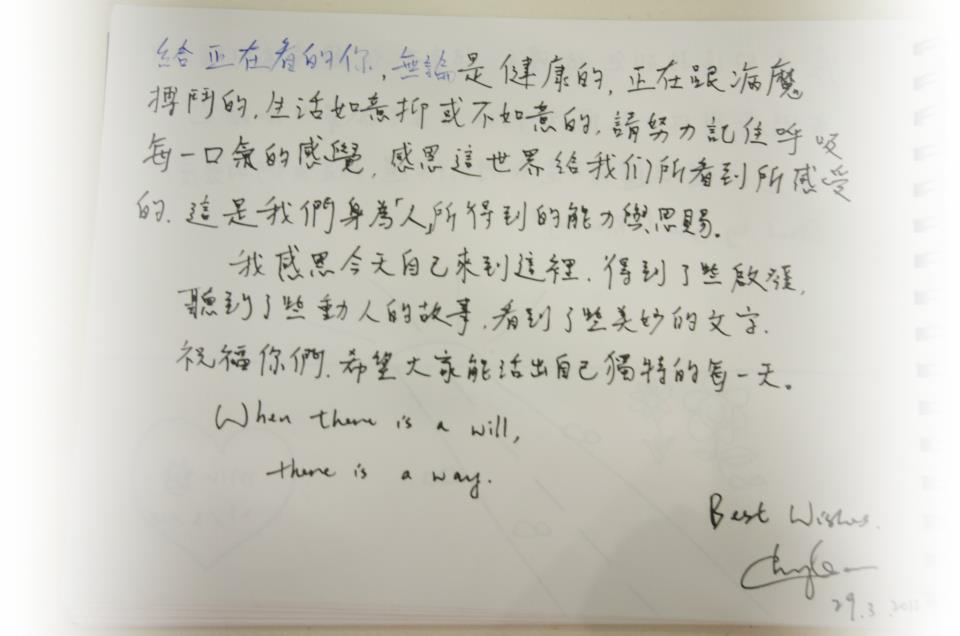 給正在看的你，無論是健康的，正在跟病魔
搏鬥的，生活如意抑或不如意的，請努力記住呼吸
每一口氣的感覺，感恩這世界給我们所看到所感受
的，這是我們身為「人」所得到的能力與恩賜。
我感恩今天自己來到這裡，得到了些啟發，
聽到了些動人的故事，看到了些美妙的文字，
祝福你們，希望大家能活出自己獨特的每一天。
When there is a will,
there is a way.
Best Wishes.
29.3.